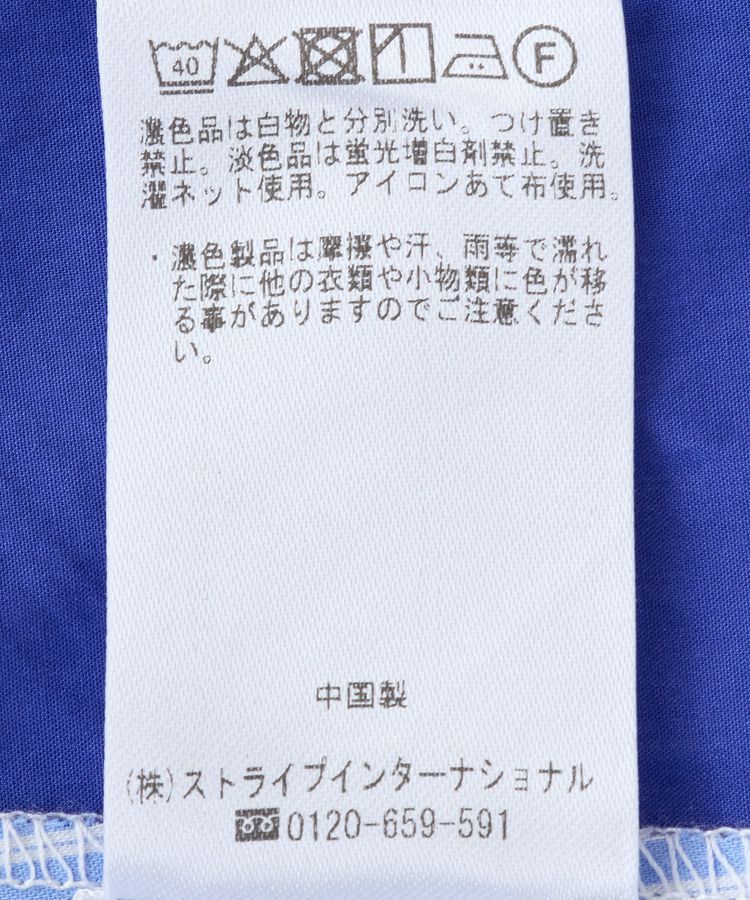 40 F
濃色品は白物と分別洗い。つけ置き
禁止。淡色品は蛍光増白剤禁止。洗
濯ネット使用。アイロンあて布使用。
・濃色製品は摩擦や汗、雨等で濡れ
た際に他の衣類や小物類に色が移
る事がありますのでご注意くださ
い。
中国製
(株)ストライプインターナショナル
0120-659-591